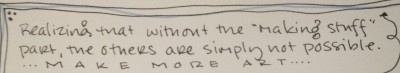 Realizing that without the "making stuff"
part, the others are simply not possible.
... MAKE MORE ART....